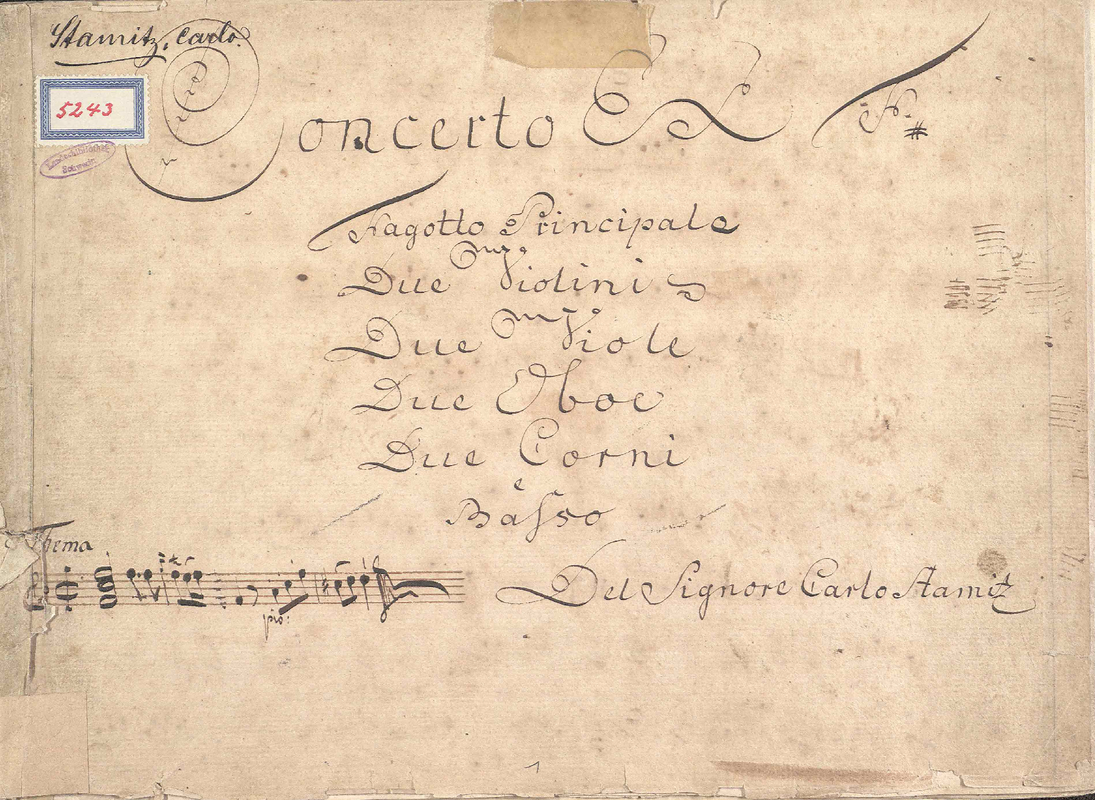 Stamitz, Carlo.
5243
Concerto Ex F. #
Fagotto Principale
Due Violini
Due Viole
Due Oboe
Due Corni
e
Basso
Thema
pio:
Del Signore Carlo Stamitz